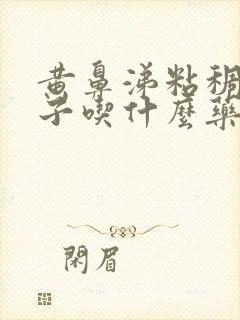 黄鼻涕粘稠
子喫什麼藥
閑眉